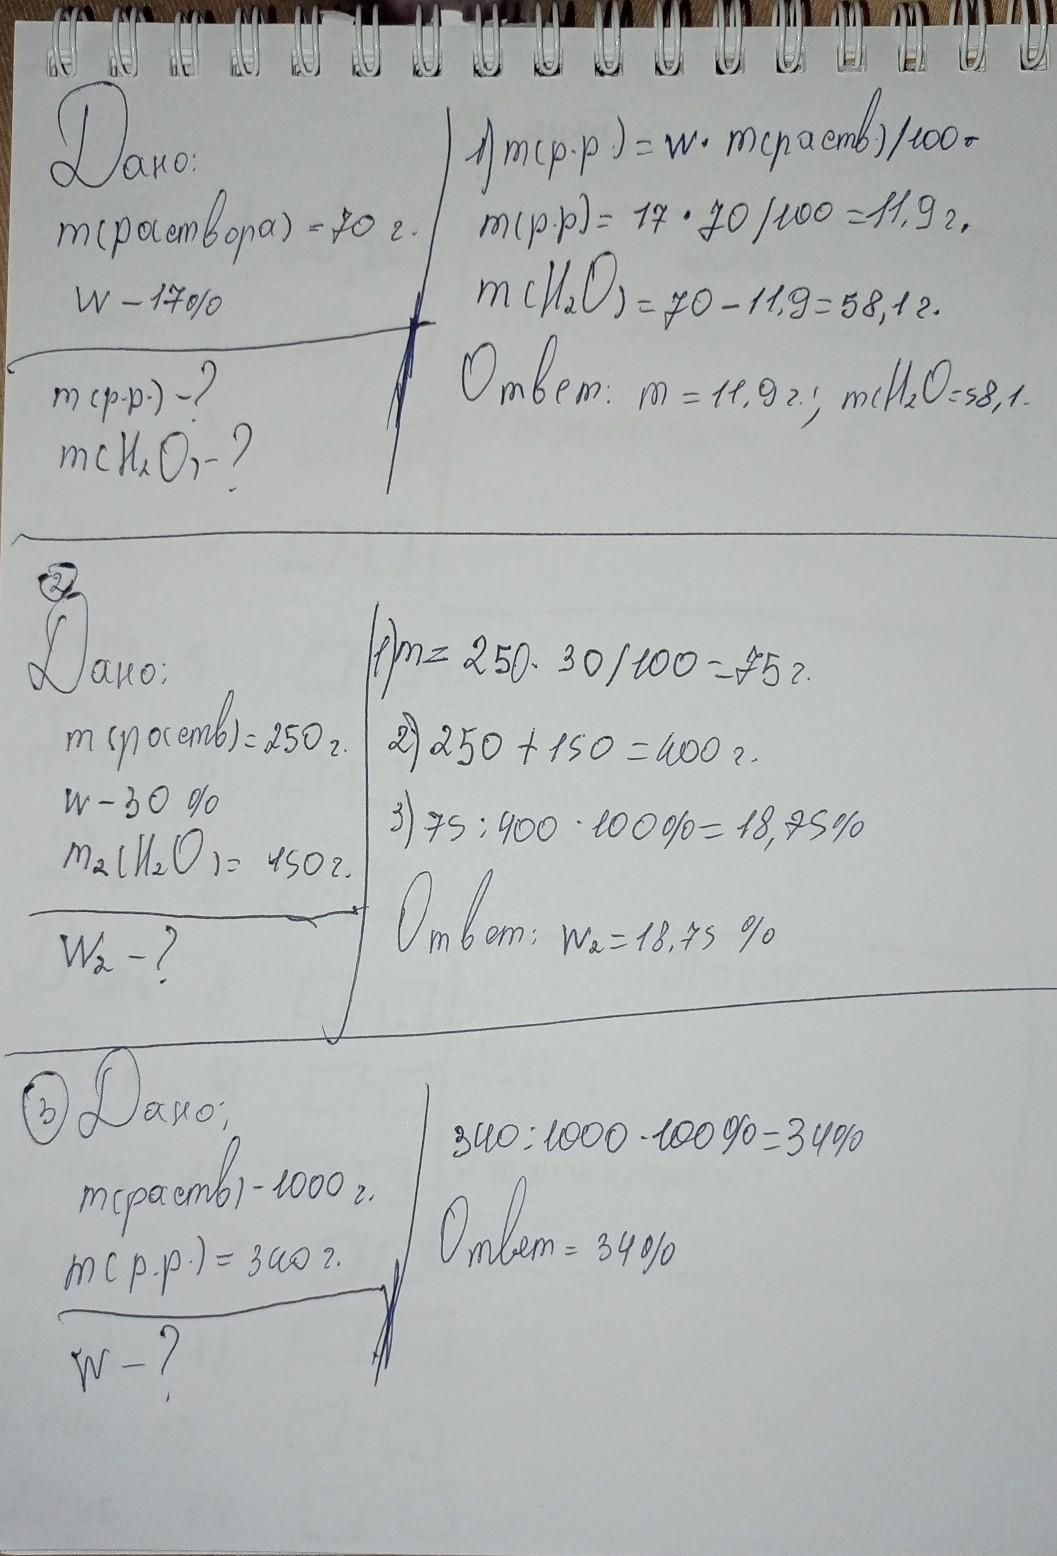 Дано:
m(раствора) = 70 г.
w – 17%
m(р.р.) – ?
m(H₂O) – ?
1) m(р.р.) = w · m(раств)/100
m(р.р) = 17 · 70/100 = 11,9 г.
m(H₂O) = 70 – 11,9 = 58,1 г.
Ответ: m = 11,9 г.; m(H₂O = 58,1.
2
Дано:
m(раств) = 250 г.
w – 30 %
m₂(H₂O) = 150 г.
W₂ – ?
1) m = 250 · 30/100 = 75 г.
2) 250 + 150 = 400 г.
3) 75 : 400 · 100% = 18,75%
Ответ: w₂ = 18,75 %
3 Дано:
m(раств) – 1000 г.
m(р.р.) = 340 г.
w – ?
340 : 1000 · 100% = 34%
Ответ = 34%